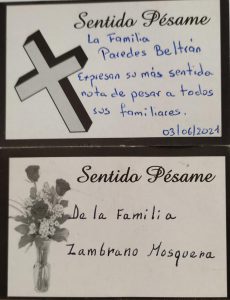 Sentido Pésame
La Familia
Paredes Beltrán
Expresan su más sentida
nota de pesar a todos
sus familiares.
03/06/2021
Sentido Pésame
De la Familia
Zambrano Mosquera